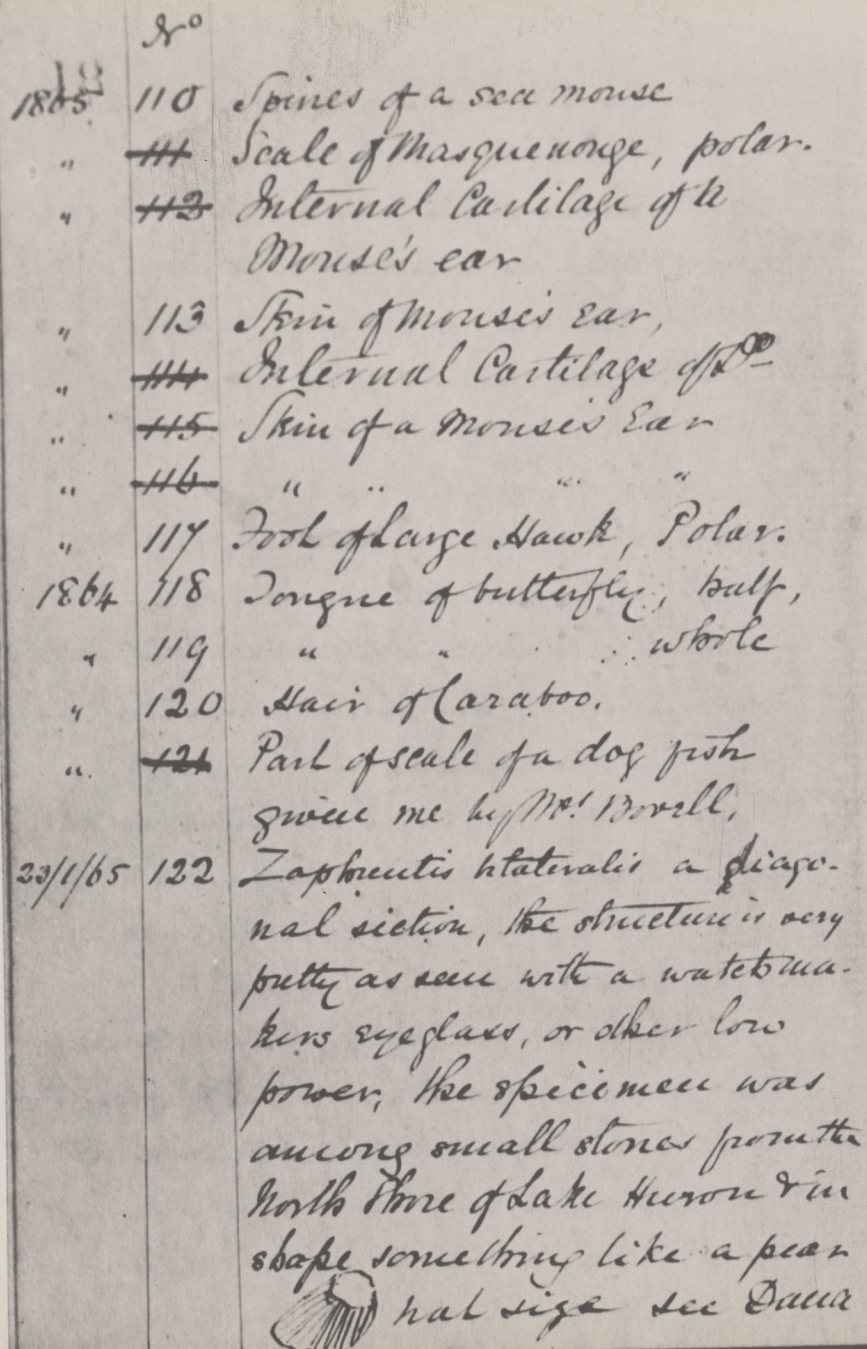 No
1865 110 Spines of a sea mouse
" 111 Scale of Masquenonge, polar.
" 112 Internal Cartilage of a
Mouse's ear
" 113 Skin of Mouse's Ear,
" 114 Internal Cartilage of Do
" 115 Skin of a Mouse's Ear
" 116 " " " "
" 117 Foot of Large Hawk, Polar.
1864 118 Tongue of butterfly, half,
" 119 " " whole
" 120 Hair of Caraboo.
" 121 Part of scale of a dog fish
given me by Mrs. Bovell.
23/1/65 122 Zaphrentis a diago-
nal section, the structure is very
pretty as seen with a watchma-
kers eyeglass, or other low
power, the specimen was
among small stones from the
North Shore of Lake Huron & in
shape something like a pear
nat size see Dana